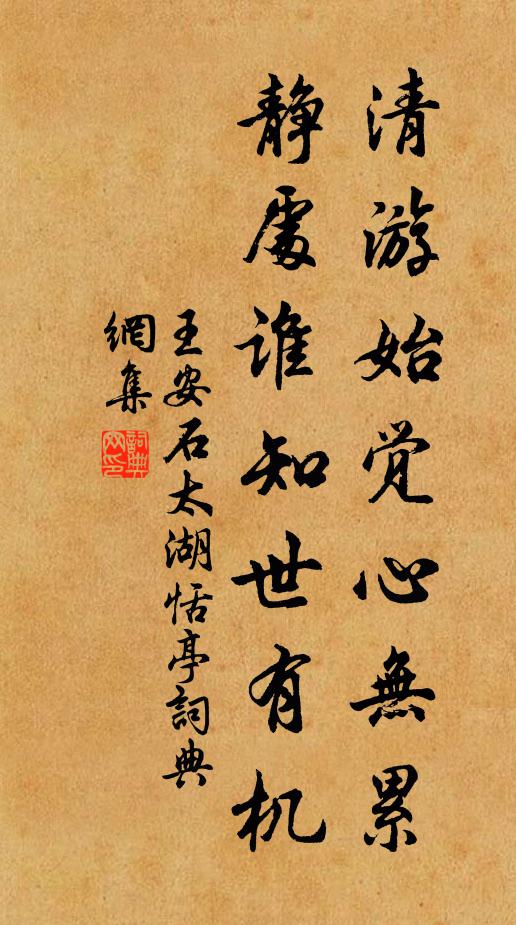 清游始觉心無累
静處谁知世有机
王安石太湖恬亭詞典
網集
詞典
网印